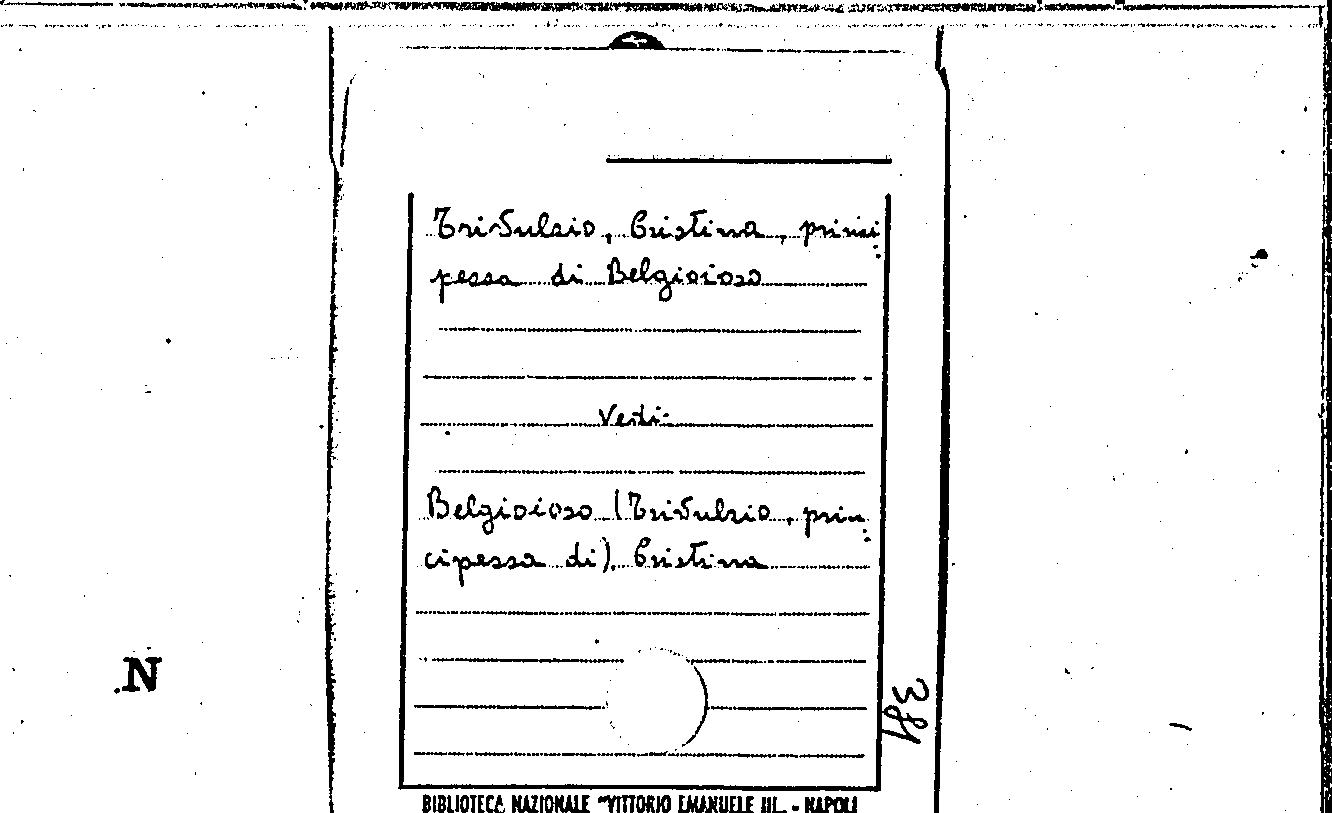 Trivulzio, Cristina, princi-
pessa di Belgioioso
Vedi:
Belgioioso (Trivulzio, prin-
cipessa di), Cristina
N
BIBLIOTECA NAZIONALE "VITTORIO EMANUELE III„ - NAPOLI